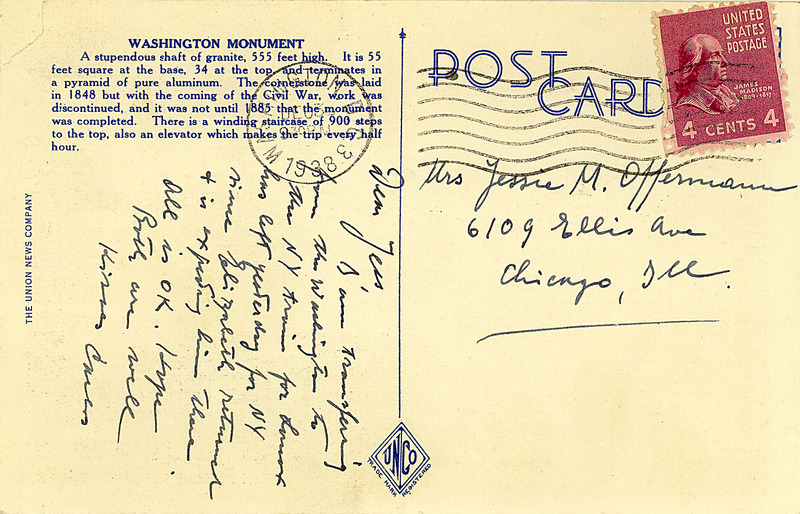 WASHINGTON MONUMENT
A stupendous shaft of granite, 555 feet high. It is 55
feet square at the base, 34 at the top, and terminates in
a pyramid of pure aluminum. The cornerstone was laid
in 1848 but with the coming of the Civil War, work was
discontinued, and it was not until 1885 that the monument
was completed. There is a winding staircase of 900 steps
to the top, also an elevator which makes the trip every half
hour.
THE UNION NEWS COMPANY
Dear Jess
I am transfering
from the Washington to
the NY train for
has left yesterday for NY
since Elizabeth returned
& is expecting him there
All is OK. Hope
Both are well
Kisses
1938
POST CARD
UNITED
STATES
POSTAGE
JAMES
MADISON
1809-1817
4 CENTS 4
Mrs Jessie M. Offermann
6109 Ellis Ave
Chicago, Ill.
UNCO
TRADE MARK REGISTERED